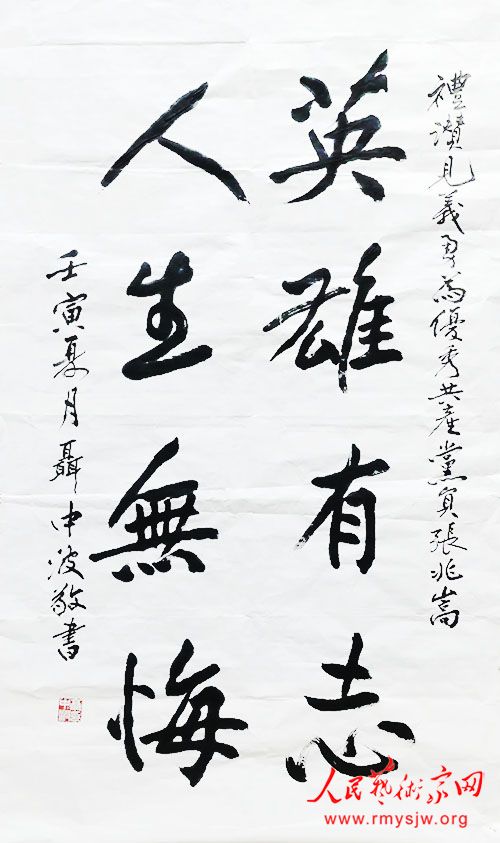 禮讚見義勇為優秀共產黨員張兆嵩
英雄有志
人生無悔
壬寅夏月聶中波敬書
人民藝術家网
www.rmysjw.org